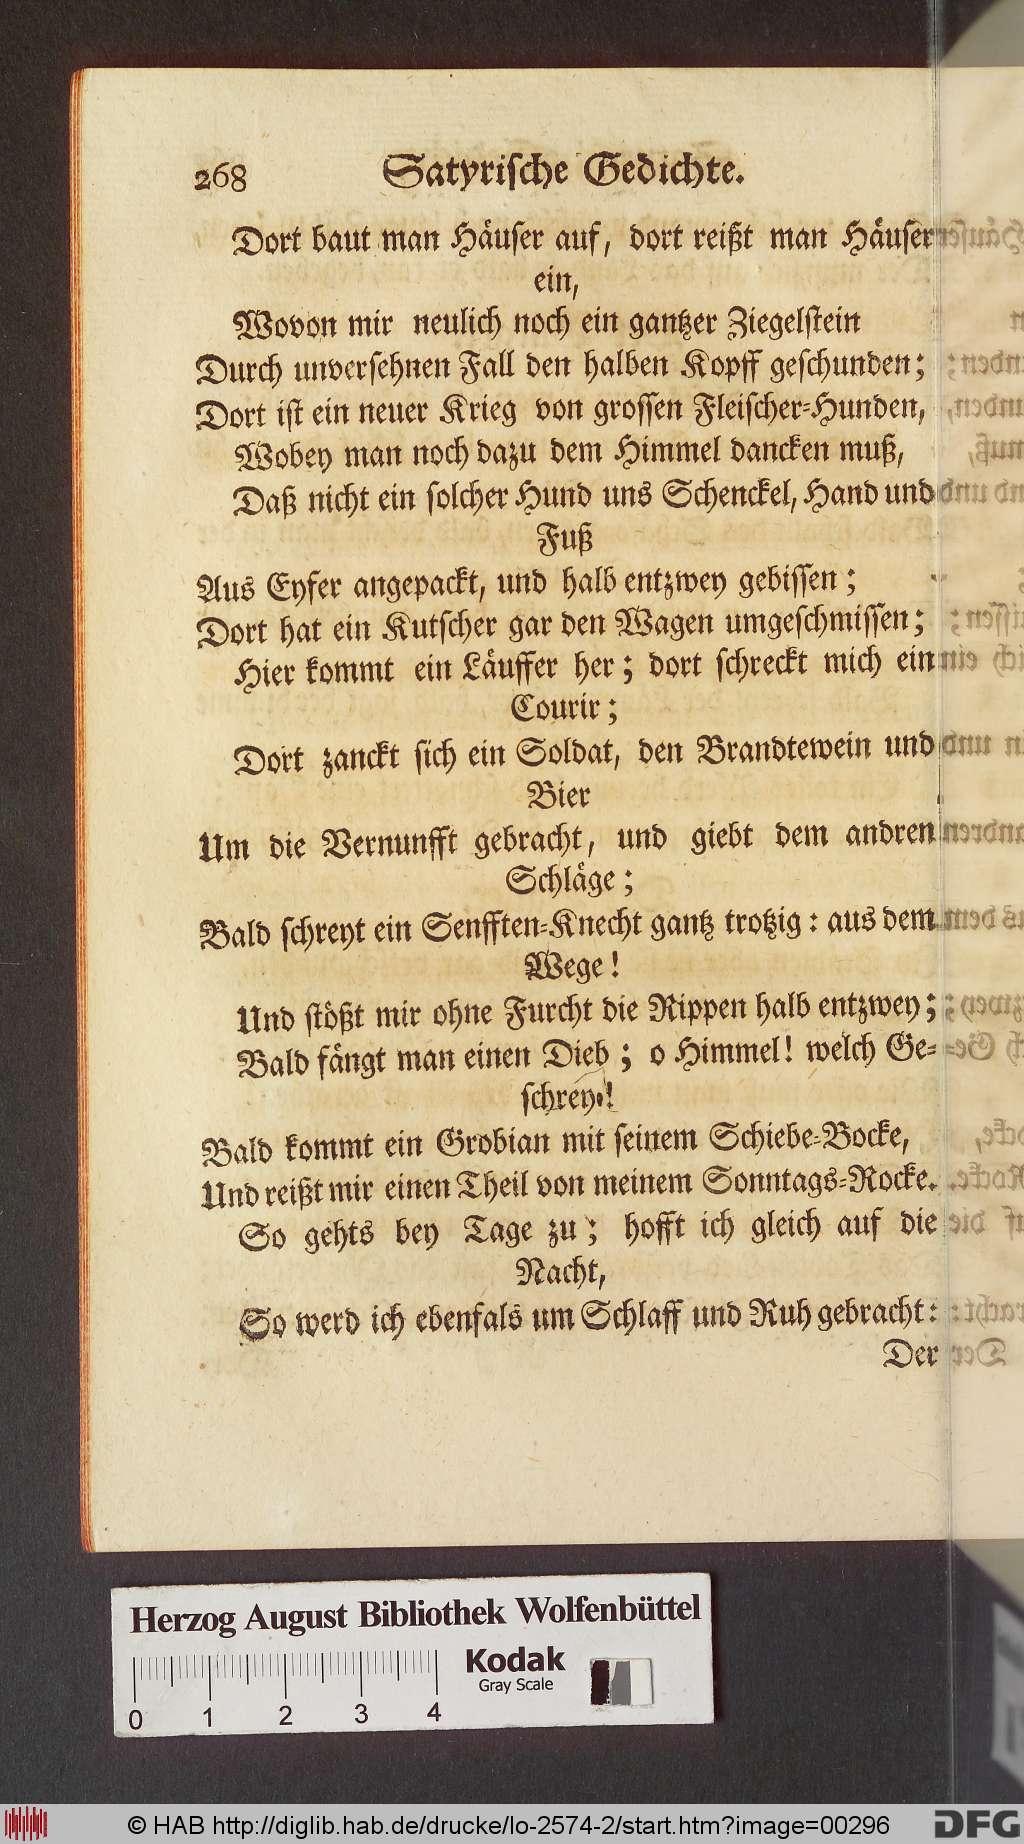 268 Satyrische Gedichte.
Dort baut man Häuser auf, dort reißt man Häuser
ein,
Wovon mir neulich noch ein gantzer Ziegelstein
Durch unversehnen Fall den halben Kopff geschunden;
Dort ist ein neuer Krieg von grossen Fleischer-Hunden,
Wobey man noch dazu dem Himmel dancken muß,
Daß nicht ein solcher Hund uns Schenckel, Hand und
Fuß
Aus Eyfer angepackt, und halb entzwey gebissen;
Dort hat ein Kutscher gar den Wagen umgeschmissen;
Hier kommt ein Läuffer her; dort schreckt mich ein
Courir;
Dort zanckt sich ein Soldat, den Brandtewein und
Bier
Um die Vernunfft gebracht, und giebt dem andren
Schläge;
Bald schreyt ein Senfften-Knecht gantz trotzig: aus dem
Wege!
Und stößt mir ohne Furcht die Rippen halb entzwey;
Bald fängt man einen Dieb; o Himmel! welch Ge-
schrey!
Bald kommt ein Grobian mit seinem Schiebe-Bocke,
Und reißt mir einen Theil von meinem Sonntags-Rocke.
So gehts bey Tage zu; hofft ich gleich auf die
Nacht,
So werd ich ebenfals um Schlaff und Ruh gebracht:
Der
Herzog August Bibliothek Wolfenbüttel
Kodak
Gray Scale
0 1 2 3 4
© HAB http://diglib.hab.de/drucke/lo-2574-2/start.htm?image=00296 DFG